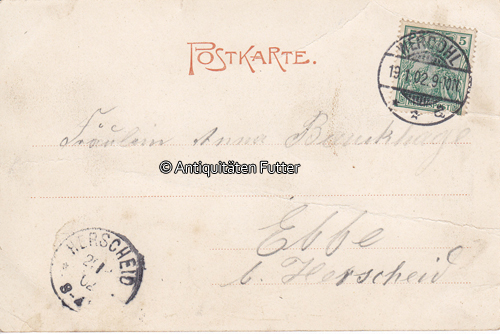 POSTKARTE.
5
WERDOHL
19.1.02.9-10V.
Fräulein Anna
© Antiquitäten Futter
Ebbe
b. Herscheid
HERSCHEID
02
8-9